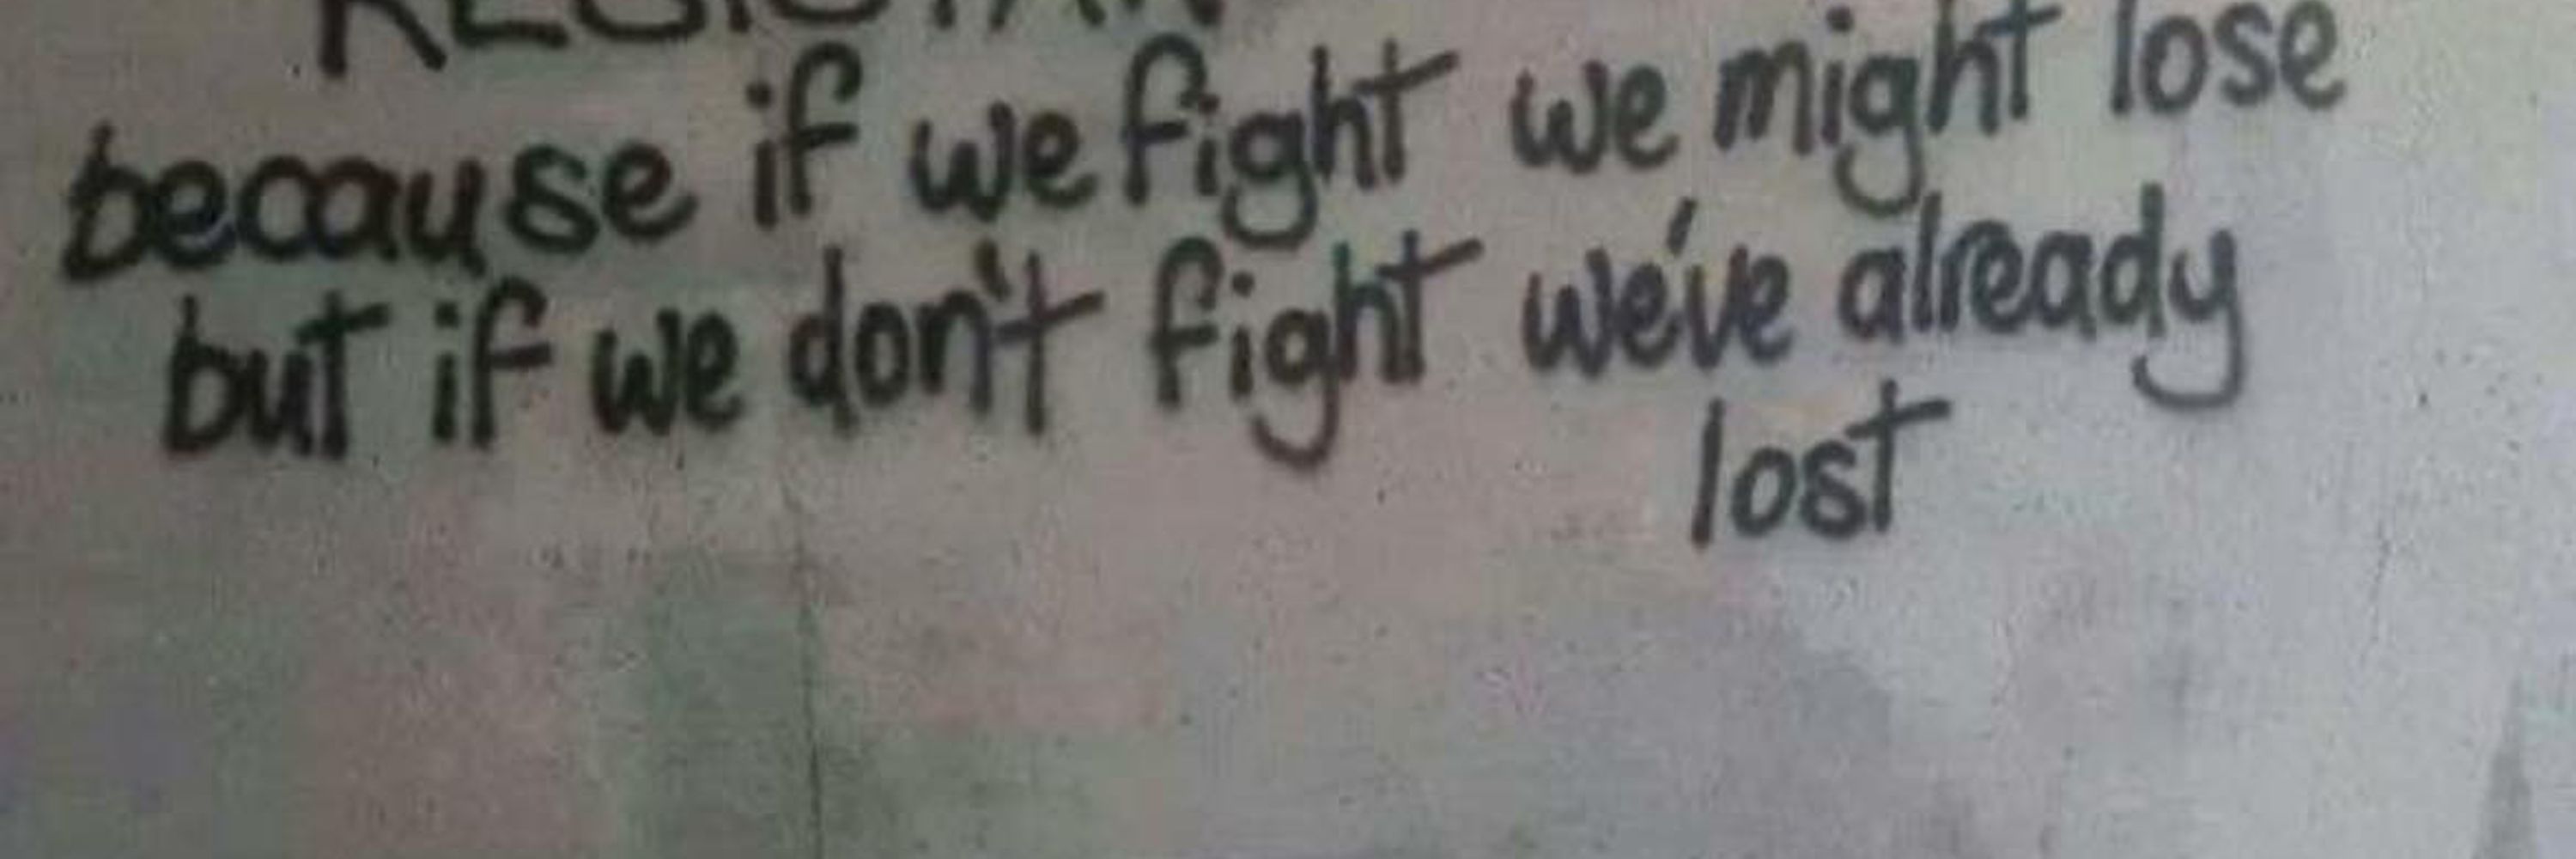 because if we fight we might lose
but if we don't fight we've already
lost